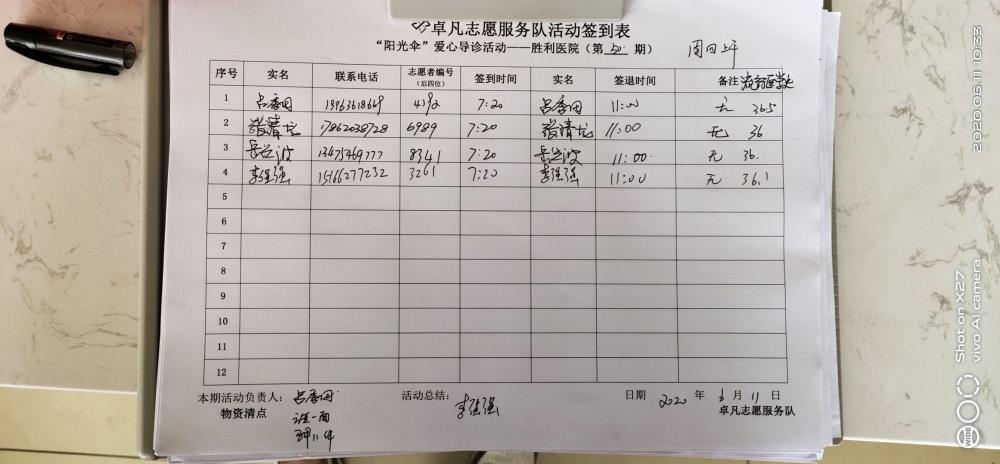 卓凡志愿服务队活动签到表
“阳光伞”爱心导诊活动——胜利医院（第 期） 周四上午
序号 实名 联系电话 志愿者编号（后四位） 签到时间 实名 签退时间 备注
1 吕秀园 4392 7:20 吕秀园 11:00 无 36.5
2 张清龙 17862038728 6989 7:20 张清龙 11:00 无 36
3 岳兰波 13475469777 8341 7:20 岳兰波 11:00 无 36.
4 李强强 15166277232 3261 7:20 李强强 11:00 无 36.1
5
6
7
8
9
10
11
12
本期活动负责人： 吕秀园 活动总结： 李强强 日期 2020 年 6 月 11 日
物资清点 卓凡志愿服务队
2020/06/11 10:33
Shot on X27
vivo AI camera
WIDE